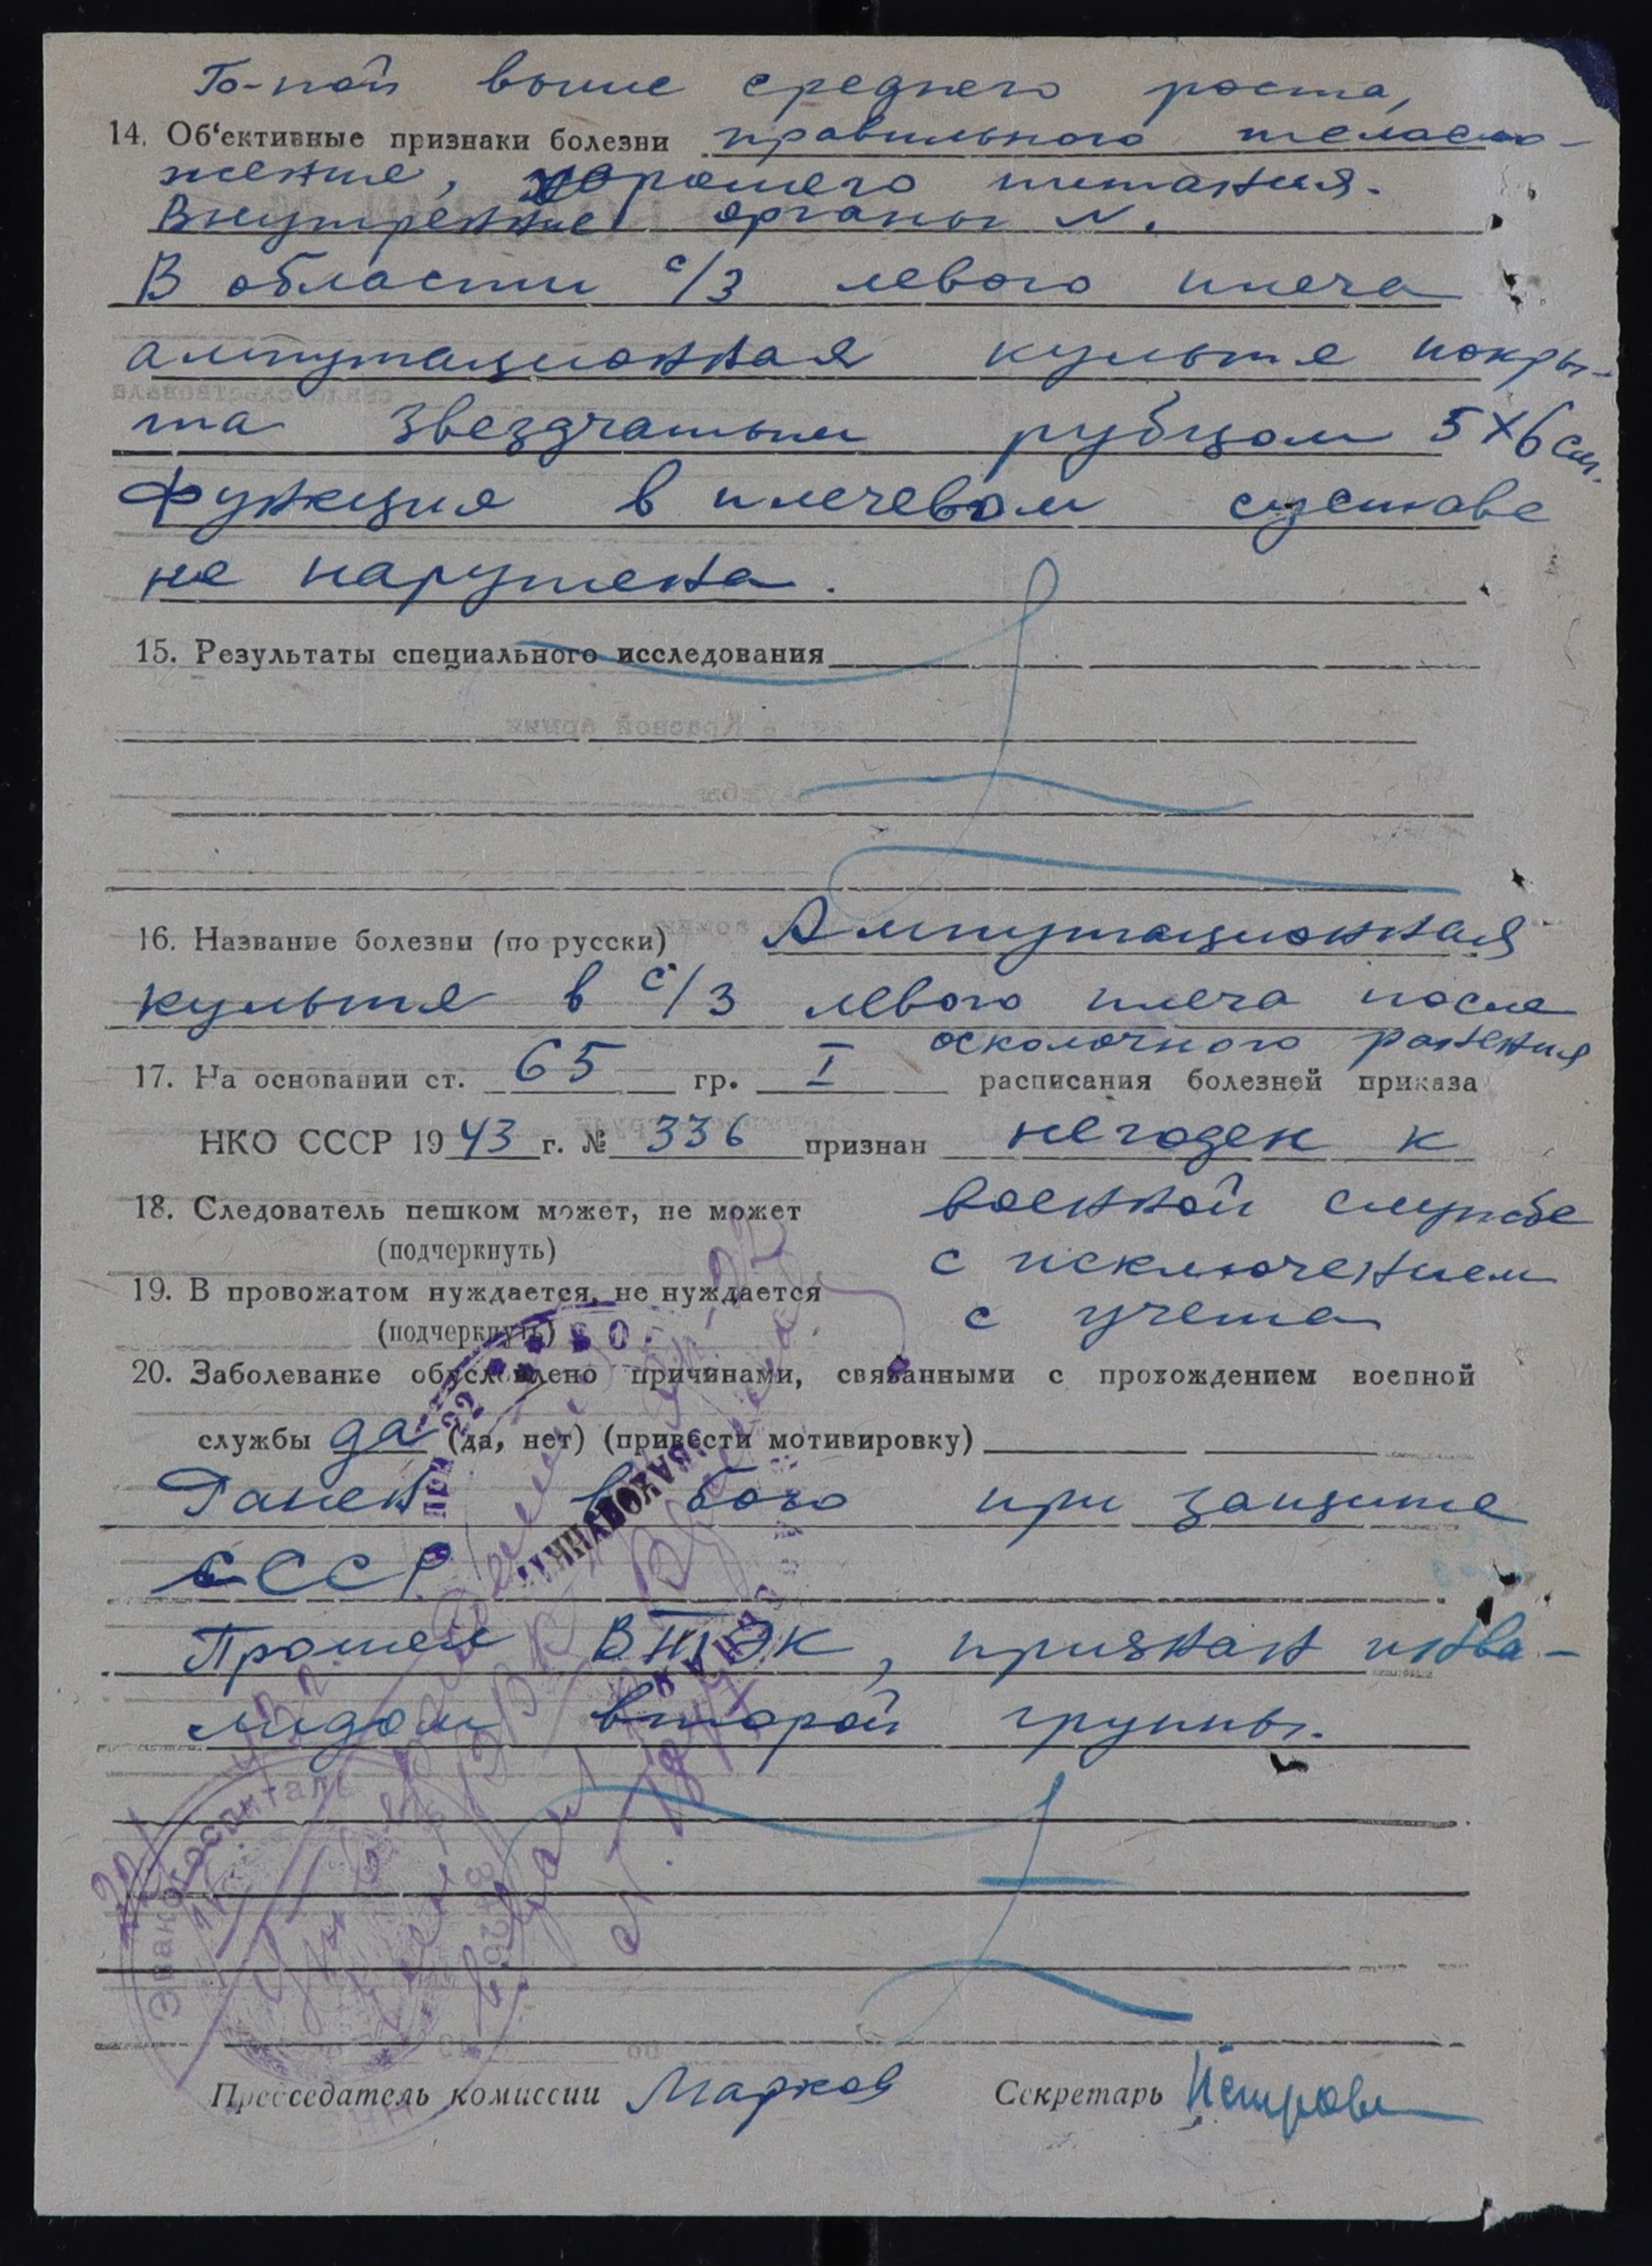 Б-ной выше среднего роста,
14. Об'ективные признаки болезни правильного телосло-
жения, хорошего питания.
Внутренние органы N.
В области с/3 левого плеча
ампутационная культя покры-
та звездчатым рубцом 5х6 см.
Функция в плечевом суставе
не нарушена.
15. Результаты специального исследования
16. Название болезни (по русски) Ампутационная
культя в с/3 левого плеча после
осколочного ранения
17. На основании ст. 65 гр. I расписания болезней приказа
НКО СССР 1943 г. № 336 признан негоден к
18. Следователь пешком может, не может
военной службе
(подчеркнуть)
с исключением
19. В провожатом нуждается, не нуждается
с учета
(подчеркнуть)
20. Заболевание обусловлено причинами, связанными с прохождением военной
службы да (да, нет) (привести мотивировку)
Ранен в бою при защите
СССР
Прошел ВТЭК, признан инва-
лидом второй группы.
Эвакогоспиталь
Председатель комиссии Марков Секретарь Петрова